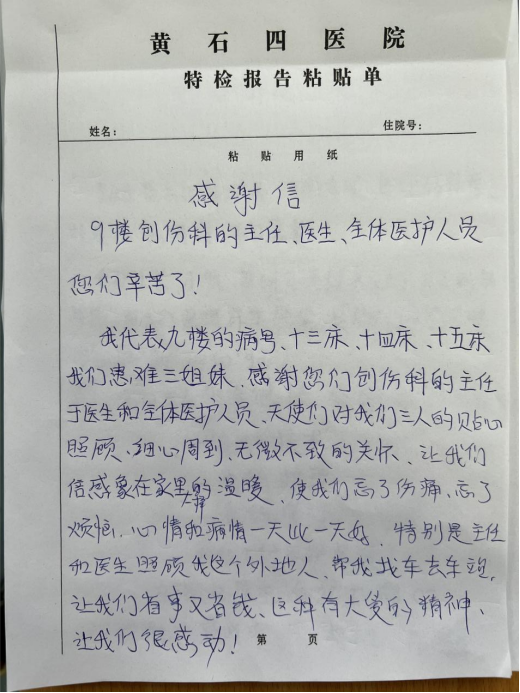 黄石四医院
特检报告粘贴单
姓名： 住院号：
粘贴用纸
感谢信
9楼创伤科的主任、医生、全体医护人员
您们辛苦了！
我代表九楼的病号、十三床、十四床、十五床
我们患难三姐妹、感谢您们创伤科的主任
于医生和全体医护人员、天使们对我们三人的贴心
照顾、细心周到、无微不致的关怀、让我们
倍感象在家里的温暖、使我们忘了伤痛、忘了
烦恼、心情和病情一天比一天好、特别是主任
和医生照顾我这个外地人、帮我找车去车
让我们省事又省钱、这种有大爱的精神、
让我们很感动！
第 页